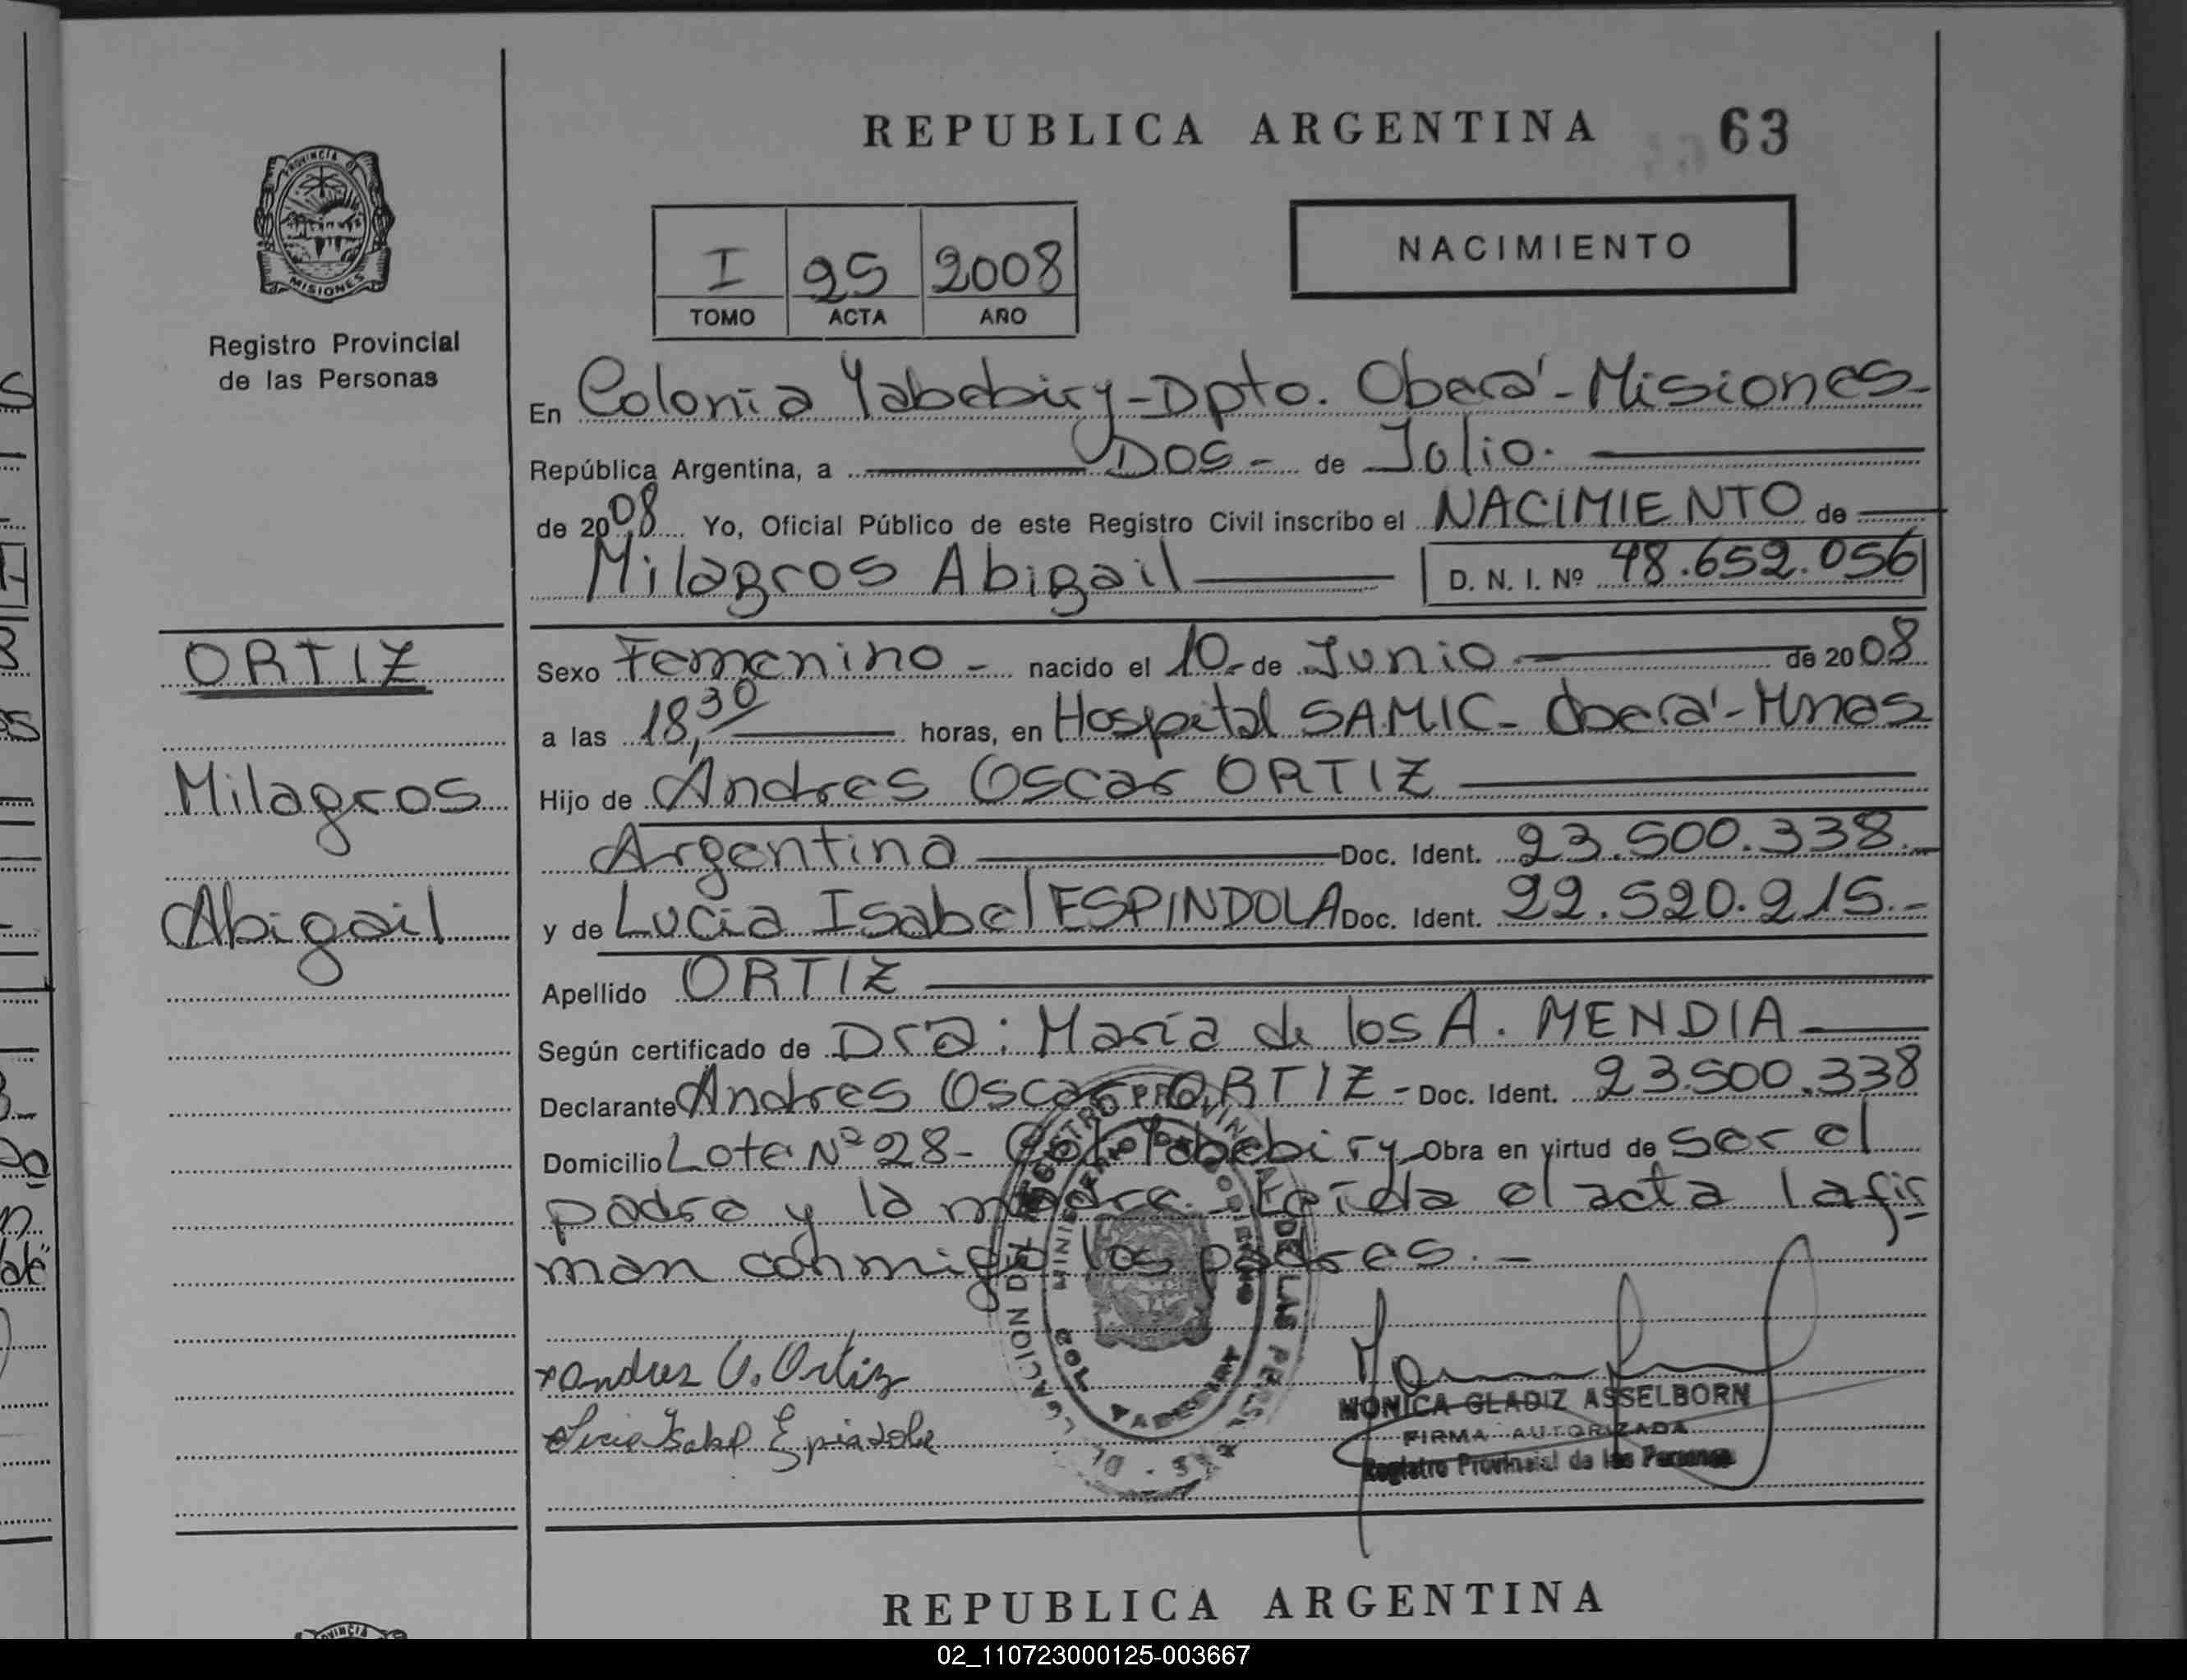 REPUBLICA ARGENTINA 63
PROVINCIA DE
MISIONES
Registro Provincial
de las Personas
I 25 2008
TOMO ACTA AÑO
NACIMIENTO
En Colonia Yabebiry-Dpto. Oberá-Misiones-
República Argentina, a Dos- de Julio.
de 2008 Yo, Oficial Público de este Registro Civil inscribo el NACIMIENTO de
Milagros Abigail D. N. I. Nº 48.652.056
ORTIZ
Milagros
Abigail
Sexo Femenino - nacido el 10- de Junio de 2008
a las 18,30 horas, en Hospital SAMIC- Oberá-Mnes
Hijo de Andres Oscar ORTIZ
Argentino Doc. Ident. 23.500.338.-
y de Lucia Isabel ESPINDOLA Doc. Ident. 22.520.215.-
Apellido ORTIZ
Según certificado de Dra: María de los A. MENDIA
Declarante Andres Oscar ORTIZ - Doc. Ident. 23.500.338
Domicilio Lote Nº 28- Col. Yabebiry- Obra en virtud de ser el
padre y la madre.- Leída el acta la fir
man conmigo los padres.-
x andres O. Ortiz
Lucia Isabel Epindola
MONICA GLADIZ ASSELBORN
FIRMA AUTORIZADA
Registro Provincial de las Personas
REPUBLICA ARGENTINA
02_110723000125-003667